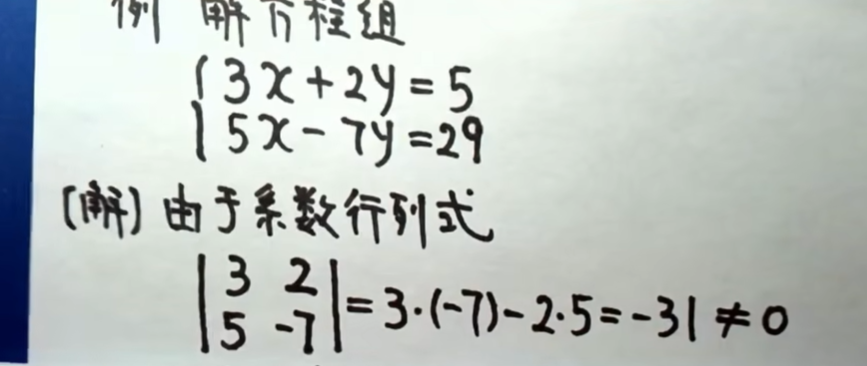 例 解方程组
{ 3x + 2y = 5
5x - 7y = 29
(解) 由于系数行列式
| 3 2 |
| 5 -7 | = 3·(-7) - 2·5 = -31 ≠ 0